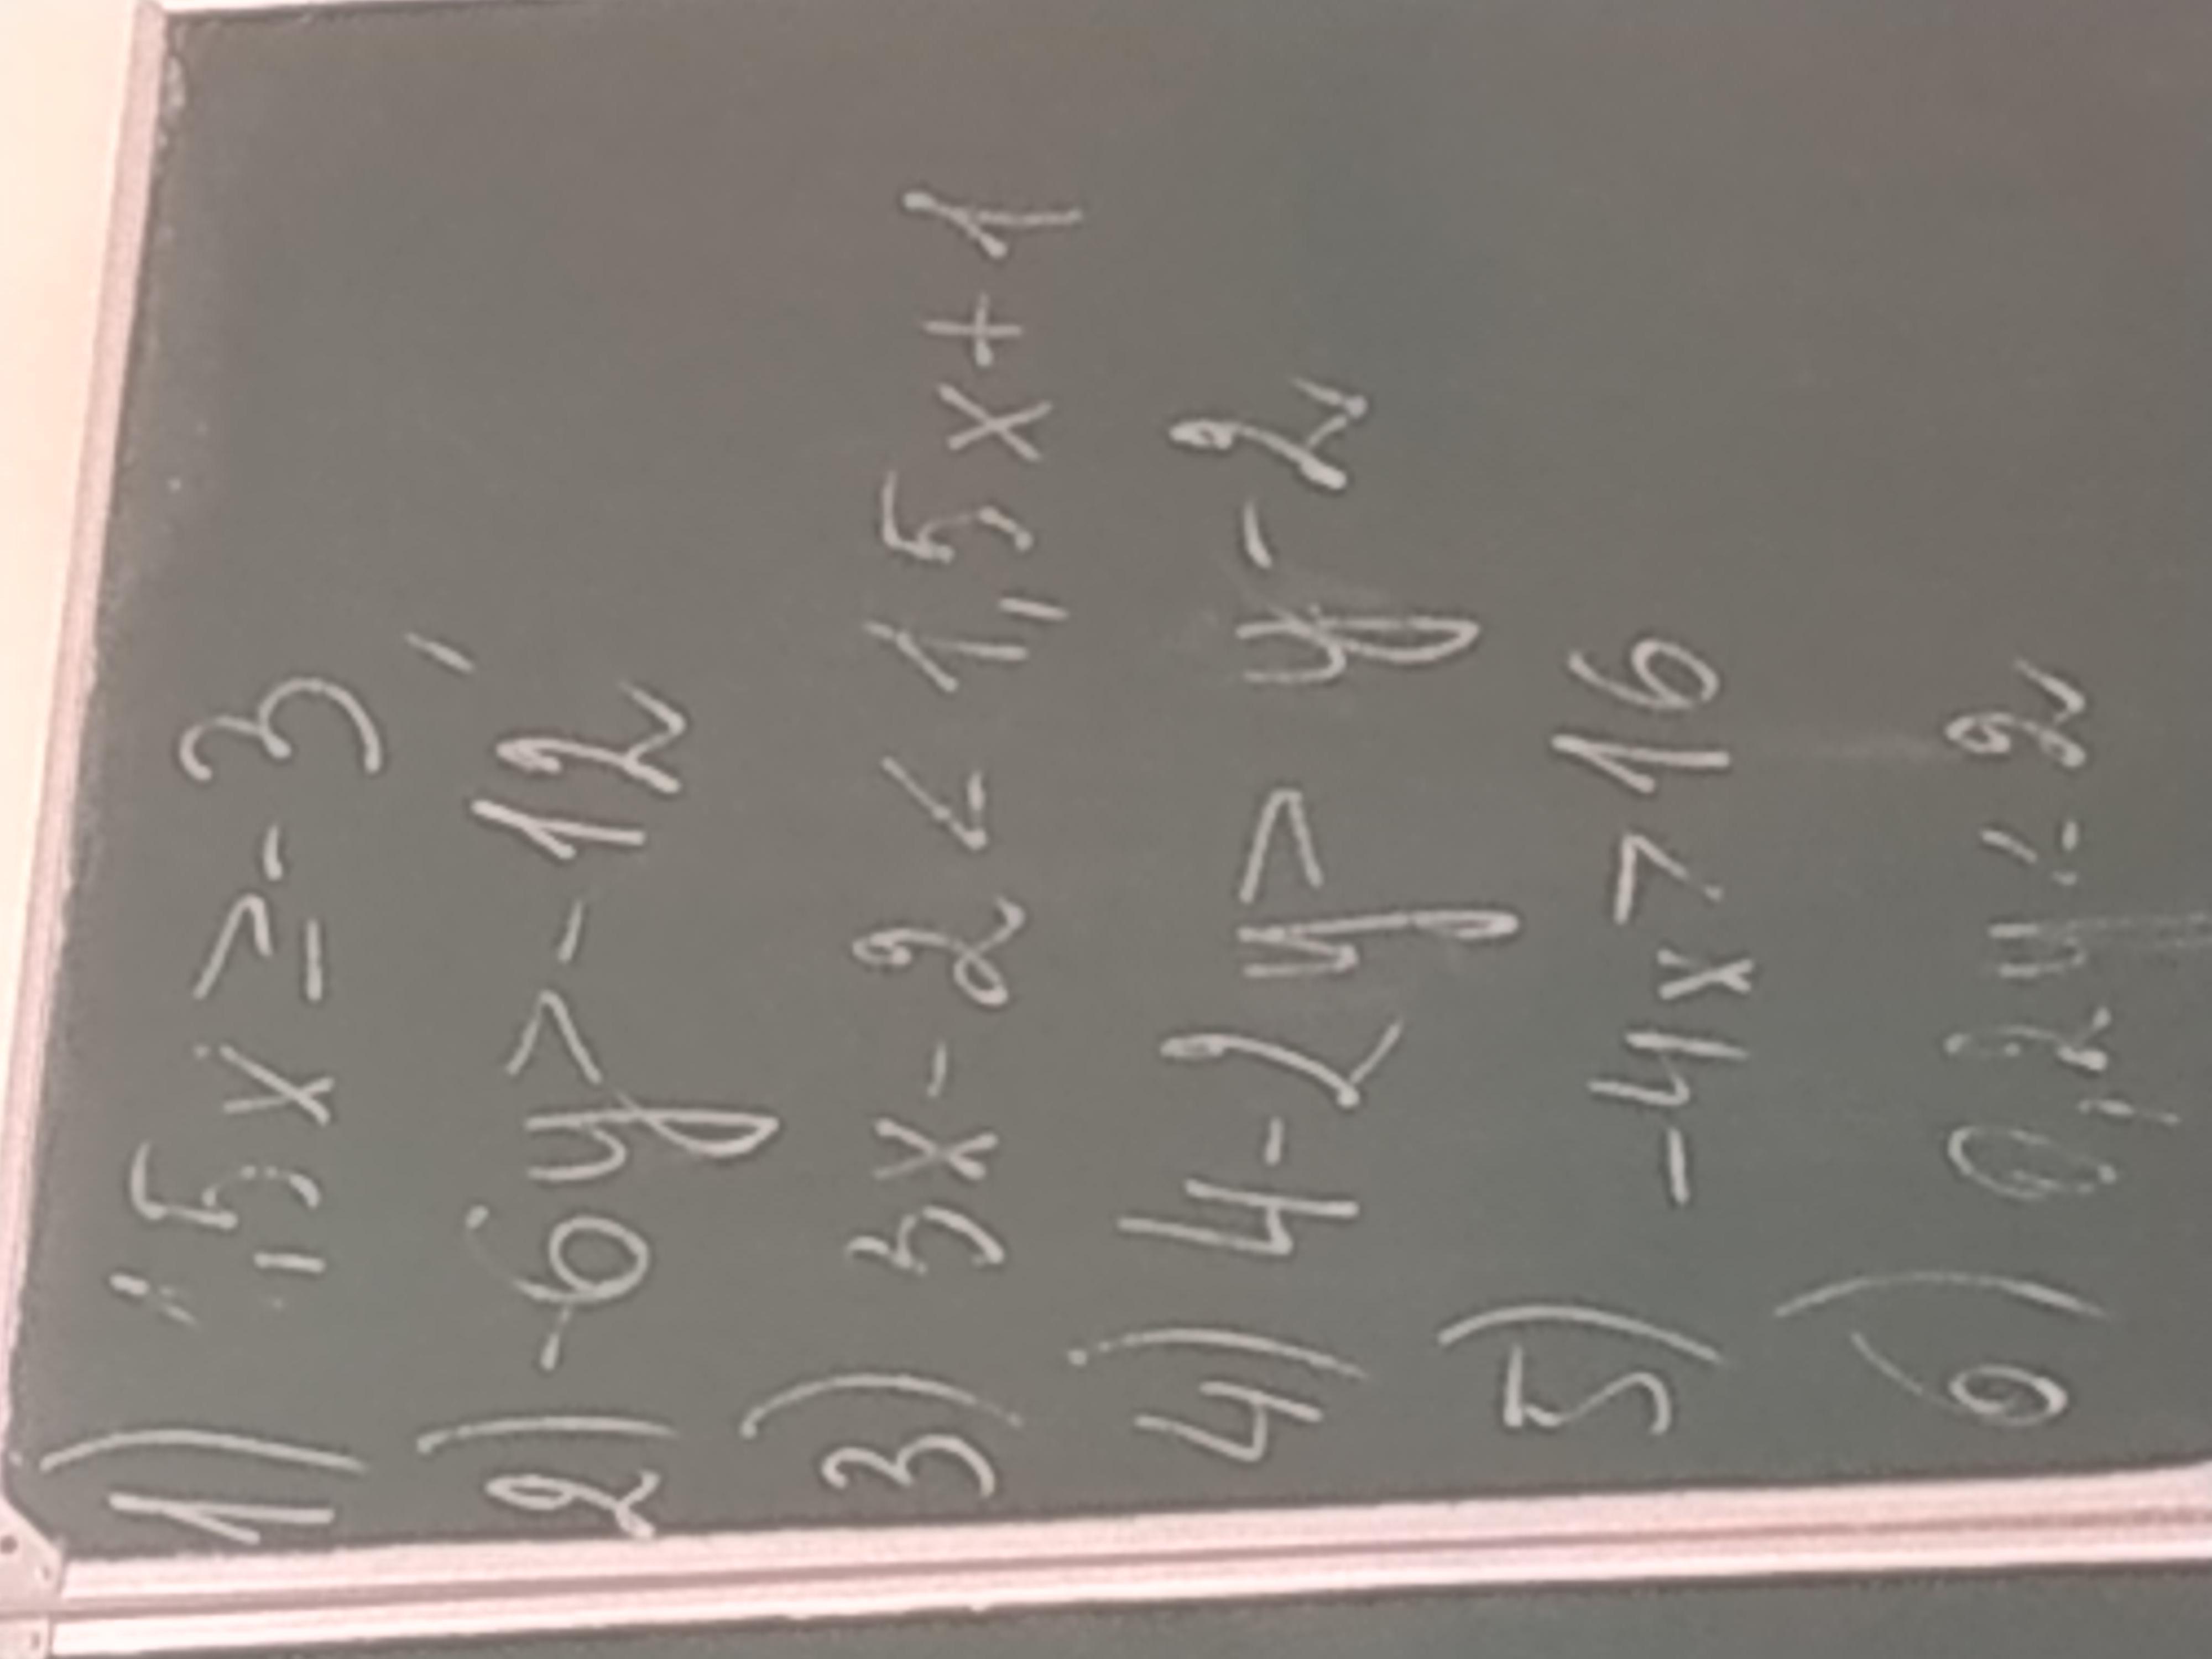 1) 1,5x ≥ -3
2) -6y > -12
3) 3x - 2 < 1,5x + 1
4) 4 - 2y > y - 2
5) -4x > 16
6) 0,2y 2